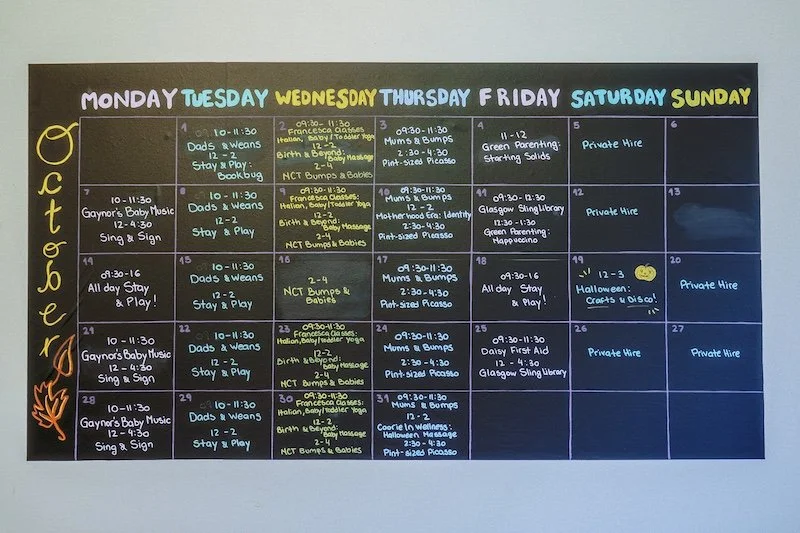 October
MONDAY TUESDAY WEDNESDAY THURSDAY FRIDAY SATURDAY SUNDAY
1
10-11:30
Dads & Weans
12-2
Stay & Play:
Bookbug
2
09:30-11:30
Francesca Classes
Italian, Baby/Toddler Yoga
12-2
Birth & Beyond:
Baby Massage
2-4
NCT Bumps & Babies
3
09:30-11:30
Mums & Bumps
2:30-4:30
Pint-sized Picasso
4
11-12
Green Parenting:
Starting Solids
5
Private Hire
6
7
10-11:30
Gaynor's Baby Music
12-4:30
Sing & Sign
8
10-11:30
Dads & Weans
12-2
Stay & Play
9
09:30-11:30
Francesca Classes:
Italian, Baby/Toddler Yoga
12-2
Birth & Beyond:
Baby Massage
2-4
NCT Bumps & Babies
10
09:30-11:30
Mums & Bumps
12-2
Motherhood Era: Identity
2:30-4:30
Pint-sized Picasso
11
09:30-12:30
Glasgow Sling Library
12:30-1:30
Green Parenting:
Happuccino
12
Private Hire
13
14
09:30-16
All day Stay
& Play!
15
10-11:30
Dads & Weans
12-2
Stay & Play
16
2-4
NCT Bumps &
Babies
17
09:30-11:30
Mums & Bumps
2:30-4:30
Pint-sized Picasso
18
09:30-16
All day Stay
& Play!
19
12-3
Halloween:
Crafts & Disco!
20
Private Hire
21
10-11:30
Gaynor's Baby Music
12-4:30
Sing & Sign
22
10-11:30
Dads & Weans
12-2
Stay & Play
23
09:30-11:30
Francesca Classes:
Italian, Baby/Toddler Yoga
12-2
Birth & Beyond:
Baby Massage
2-4
NCT Bumps & Babies
24
09:30-11:30
Mums & Bumps
2:30-4:30
Pint-sized Picasso
25
09:30-11:30
Daisy First Aid
12-4:30
Glasgow Sling Library
26
Private Hire
27
Private Hire
28
10-11:30
Gaynor's Baby Music
12-4:30
Sing & Sign
29
10-11:30
Dads & Weans
12-2
Stay & Play
30
09:30-11:30
Francesca Classes:
Italian, Baby/Toddler Yoga
12-2
Birth & Beyond:
Baby Massage
2-4
NCT Bumps & Babies
31
09:30-11:30
Mums & Bumps
12-2
Coorie In Wellness:
Halloween Massage
2:30-4:30
Pint-sized Picasso